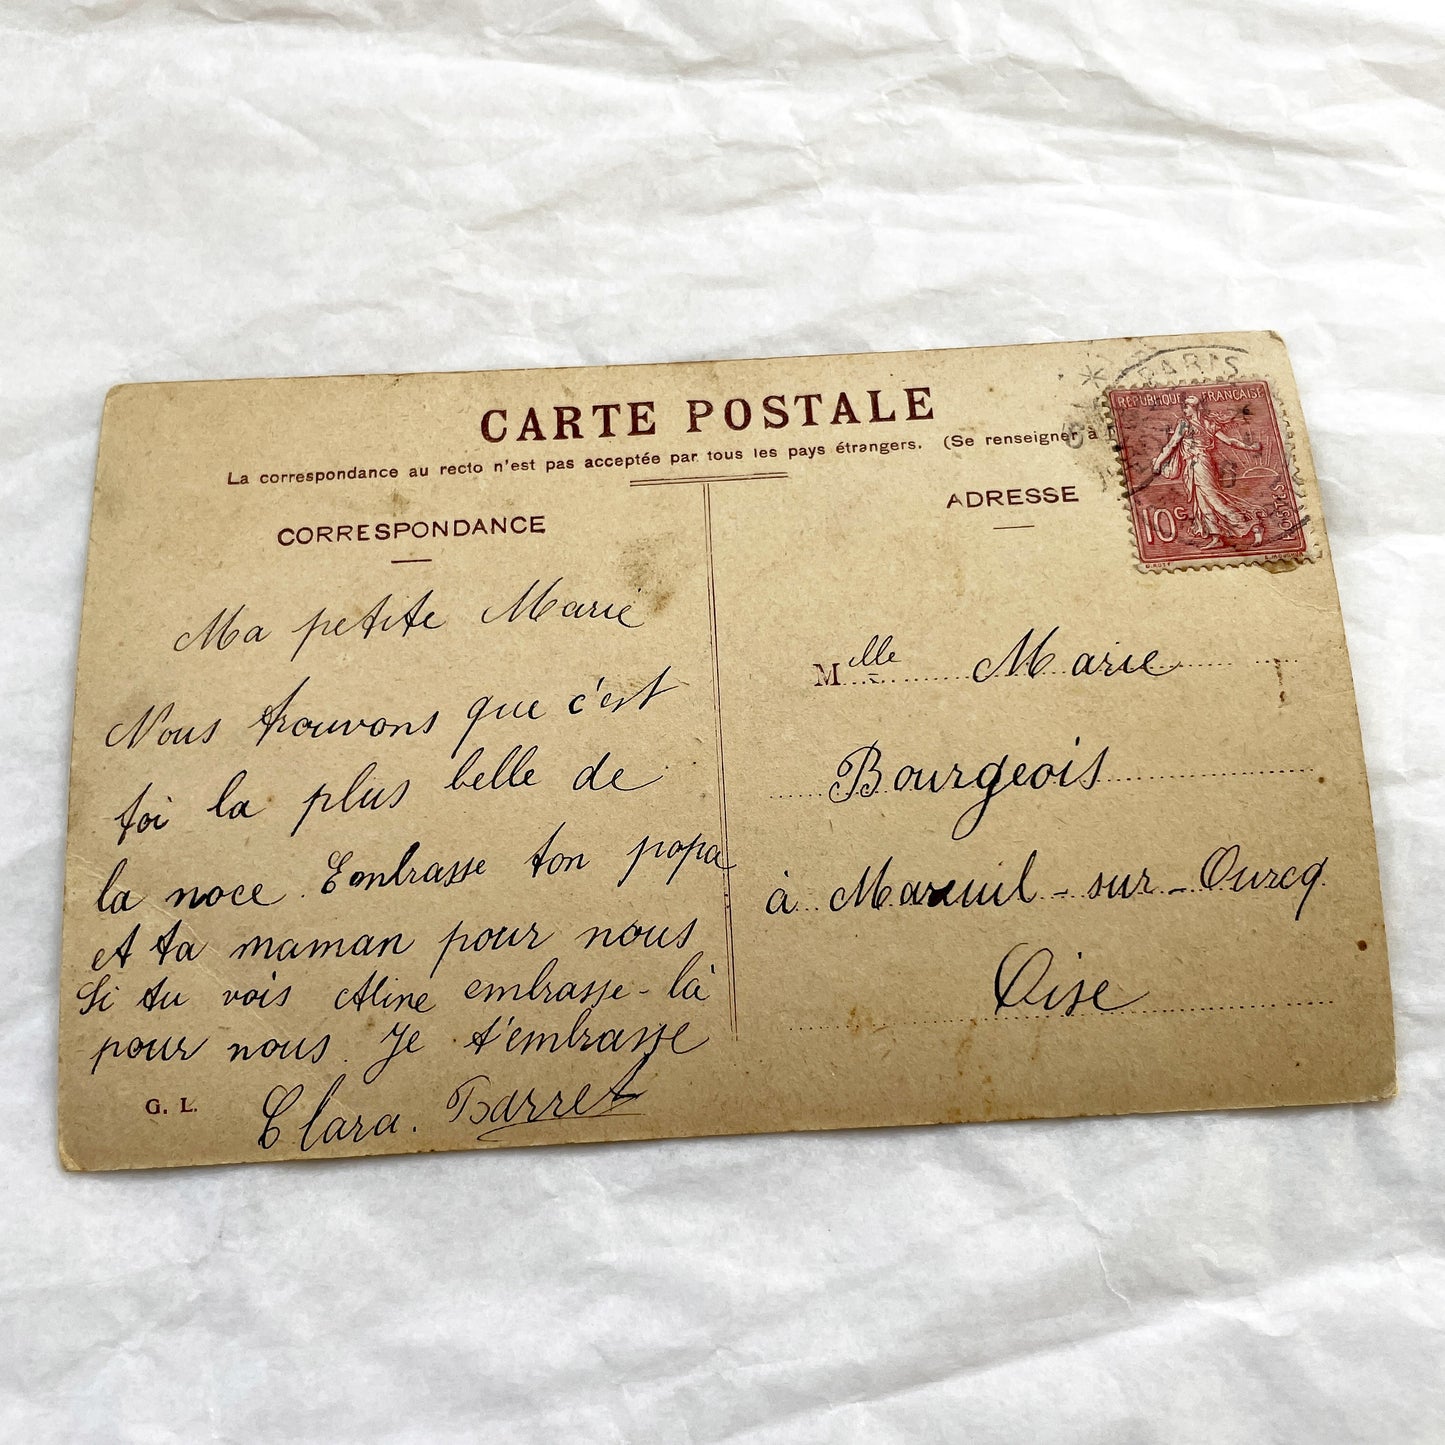 CARTE POSTALE
La correspondance au recto n'est pas acceptée par tous les pays étrangers. (Se renseigner à
CORRESPONDANCE
Ma petite Marie
Nous trouvons que c'est
toi la plus belle de
la noce. Embrasse ton papa
et ta maman pour nous
Si tu vois Aline embrasse-là
pour nous. Je t'embrasse
Clara. Barret
G. L.
PARIS
REPUBLIQUE FRANÇAISE
10c
POSTES
ADRESSE
Melle Marie
Bourgeois
à Mareuil-sur-Ourcq
Oise